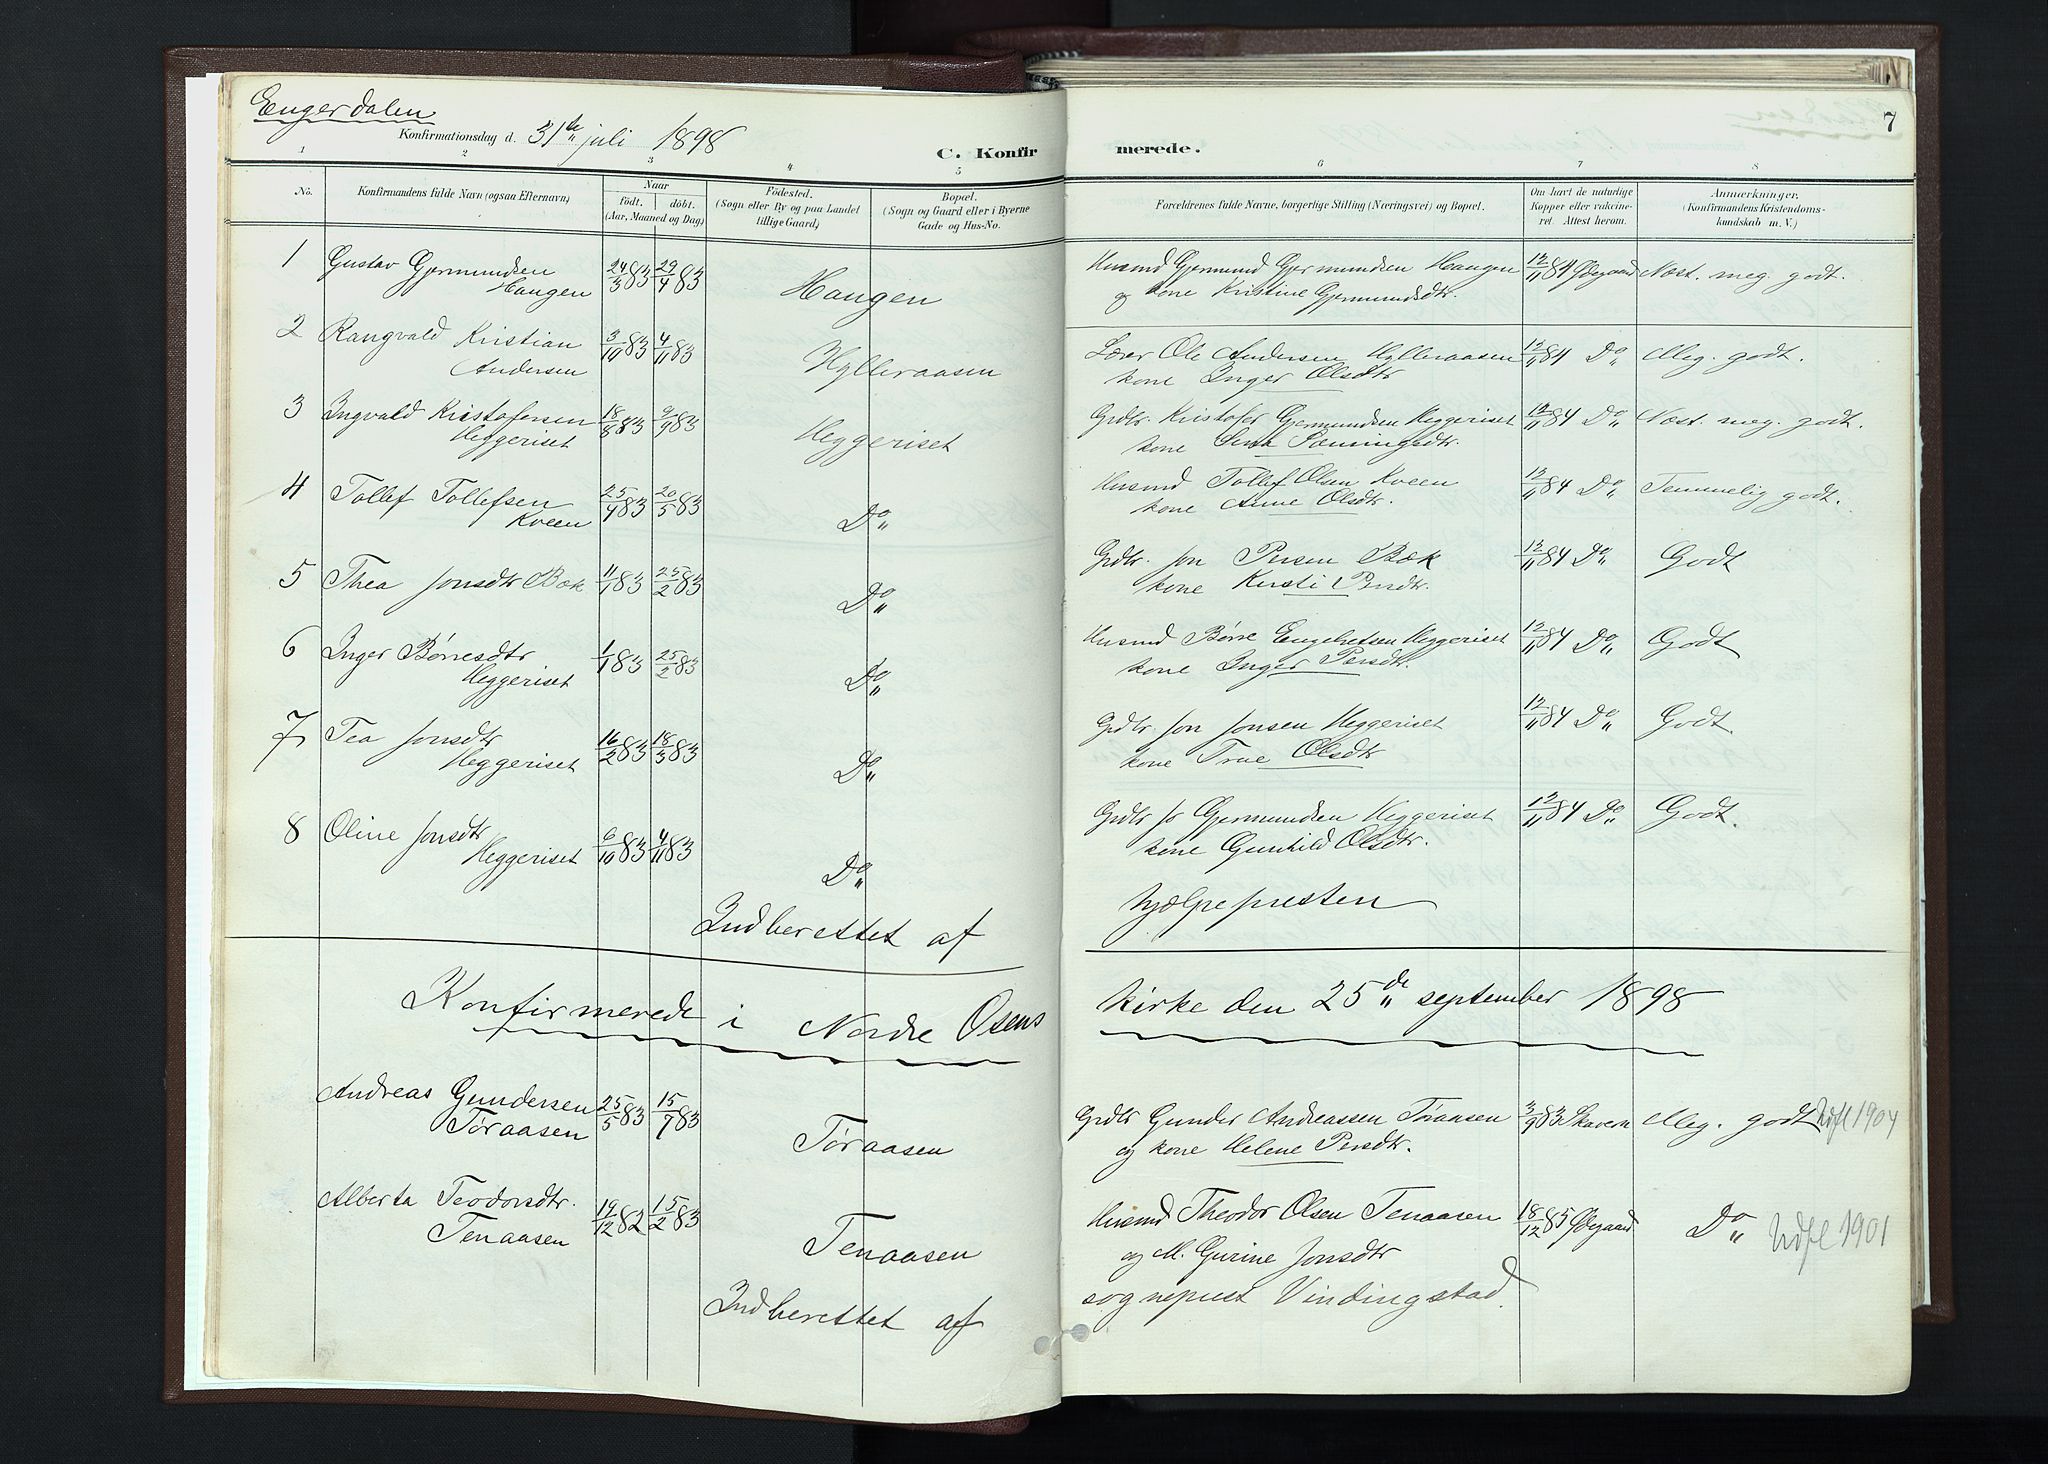 Engerdalen
7
Konfirmationsdag d. 31te juli 1898
C. Konfirmerede.
1 2 3 4 5 6 7 8
No.
Konfirmandens fulde Navn (ogsaa Efternavn)
Naar
födt. döbt.
(Aar, Maaned og Dag)
Födested.
(Sogn eller By og paa Landet
tillige Gaard)
Bopæl.
(Sogn og Gaard eller i Byerne
Gade og Hus-No.
Forældrenes fulde Navne, borgerlige Stilling (Næringsvei) og Bopæl.
Om havt de naturlige
Kopper eller vakcine-
ret. Attest herom.
Anmærkninger.
(Konfirmandens Kristendoms-
kundskab m. V.)
1 Gustav Gjermundsen 24/3 83 29/4 83 Haugen Husmd Gjermund Gjermundsen Haugen 12/11 84 Ødegaard Næst. meg. godt.
Haugen og kone Kristine Gjermundsdtr.
2 Rangvald Kristian 3/10 83 4/11 83 Hylleraasen Lærer Ole Andersen Hylleraasen 12/11 84 Do Meg. godt.
Andersen kone Inger Olsdtr
3 Ingvald Kristofersen 18/8 83 9/9 83 Heggeriset Grdbr. Kristofer Gjermundsen Heggeriset 12/11 84 Do Næst. meg. godt.
Heggeriset kone
4 Tollef Tollefsen 25/4 83 20/5 83 Do Husmd Tollef Olsen Kveen 12/11 84 Do Temmelig godt.
Kveen kone Anne Olsdtr.
5 Thea Jonsdtr Bæk 11/1 83 25/2 83 Do Grdbr. Jon Persen Bæk 12/11 84 Do Godt
kone Kersti Persdtr.
6 Inger Børresdtr 1/1 83 25/2 83 Do Husmd Børre Engebretsen Heggeriset 12/11 84 Do Godt
Heggeriset kone Inger Persdtr.
7 Tea Jonsdtr 16/2 83 18/3 83 Do Grdbr Jon Jonsen Heggeriset 12/11 84 Do Godt.
Heggeriset kone Olsdtr
8 Oline Jonsdtr 6/10 83 4/11 83 Do Grdbr Jo Gjermundsen Heggeriset 12/11 84 Do Godt.
Heggeriset kone Gunhild Olsdtr.
Indberettet af hjælpepresten
Konfirmerede i Nordre Osens kirke den 25de september 1898
Andreas Gundersen 25/5 83 15/7 83 Tøraasen Grdbr Gunder Andreassen Tøraasen 3/9 83 Skavern Meg. godt Udfl 1904
Tøraasen og kone Helene Persdtr.
Alberta Teodorsdtr. 19/12 82 15/2 83 Tenaasen Husmd Theodor Olsen Tenaasen 18/12 85 Ødegaard Do Udfl 1901
Tenaasen og M. Gurine Jonsdtr
Indberettet af sogneprest Vindingstad.